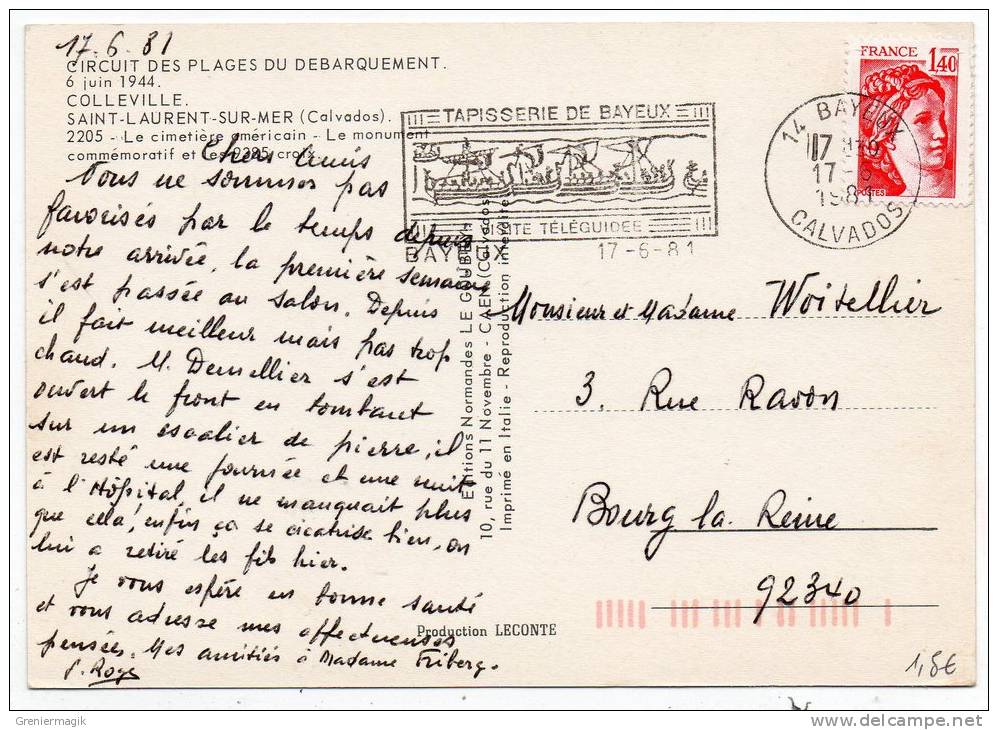 17.6.81
CIRCUIT DES PLAGES DU DEBARQUEMENT.
6 juin 1944.
COLLEVILLE.
SAINT-LAURENT-SUR-MER (Calvados).
2205 - Le cimetière américain - Le monument
commémoratif et les 9285 croix
Chers Amis
Nous ne sommes pas
favorisés par le temps depuis
notre arrivée, la première semaine
s'est passée au salon. Depuis
il fait meilleur mais pas trop
chaud. M. Demellier s'est
ouvert le front en tombant
sur un escalier de pierre, il
est resté une journée et une nuit
à l'Hôpital, il ne manquait plus
que cela! enfin ça se cicatrise bien, on
lui a retiré les fils hier.
Je vous espère en bonne santé
et vous adresse mes affectueuses
pensées. Mes amitiés à Madame Friberg.
Editions Normandes LE GOUBEY
10, rue du 11 Novembre - CAEN (Calvados)
Imprimé en Italie - Reproduction interdite
Production LECONTE
TAPISSERIE DE BAYEUX
VISITE TÉLÉGUIDÉE
BAYEUX 17-6-81
FRANCE 1,40
POSTES
14 BAYEUX
17
1981
CALVADOS
Monsieur et Madame Woitellier
3. Rue Ravon
Bourg la Reine
92340
1,5€
Greniermagik
www.delcampe.net